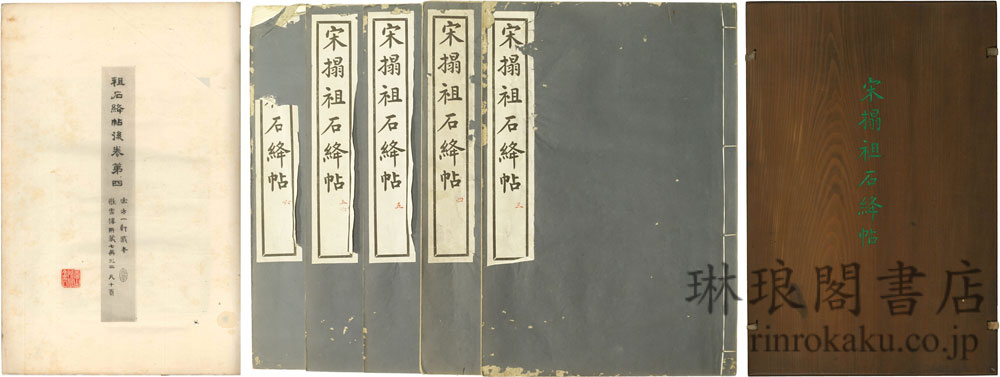 祖石絳帖後卷第四
宋搨祖石絳帖
三
宋搨祖石絳帖
四
宋搨祖石絳帖
五
宋搨祖石絳帖
石絳帖
宋搨祖石絳帖
琳琅閣書店
rinrokaku.co.jp